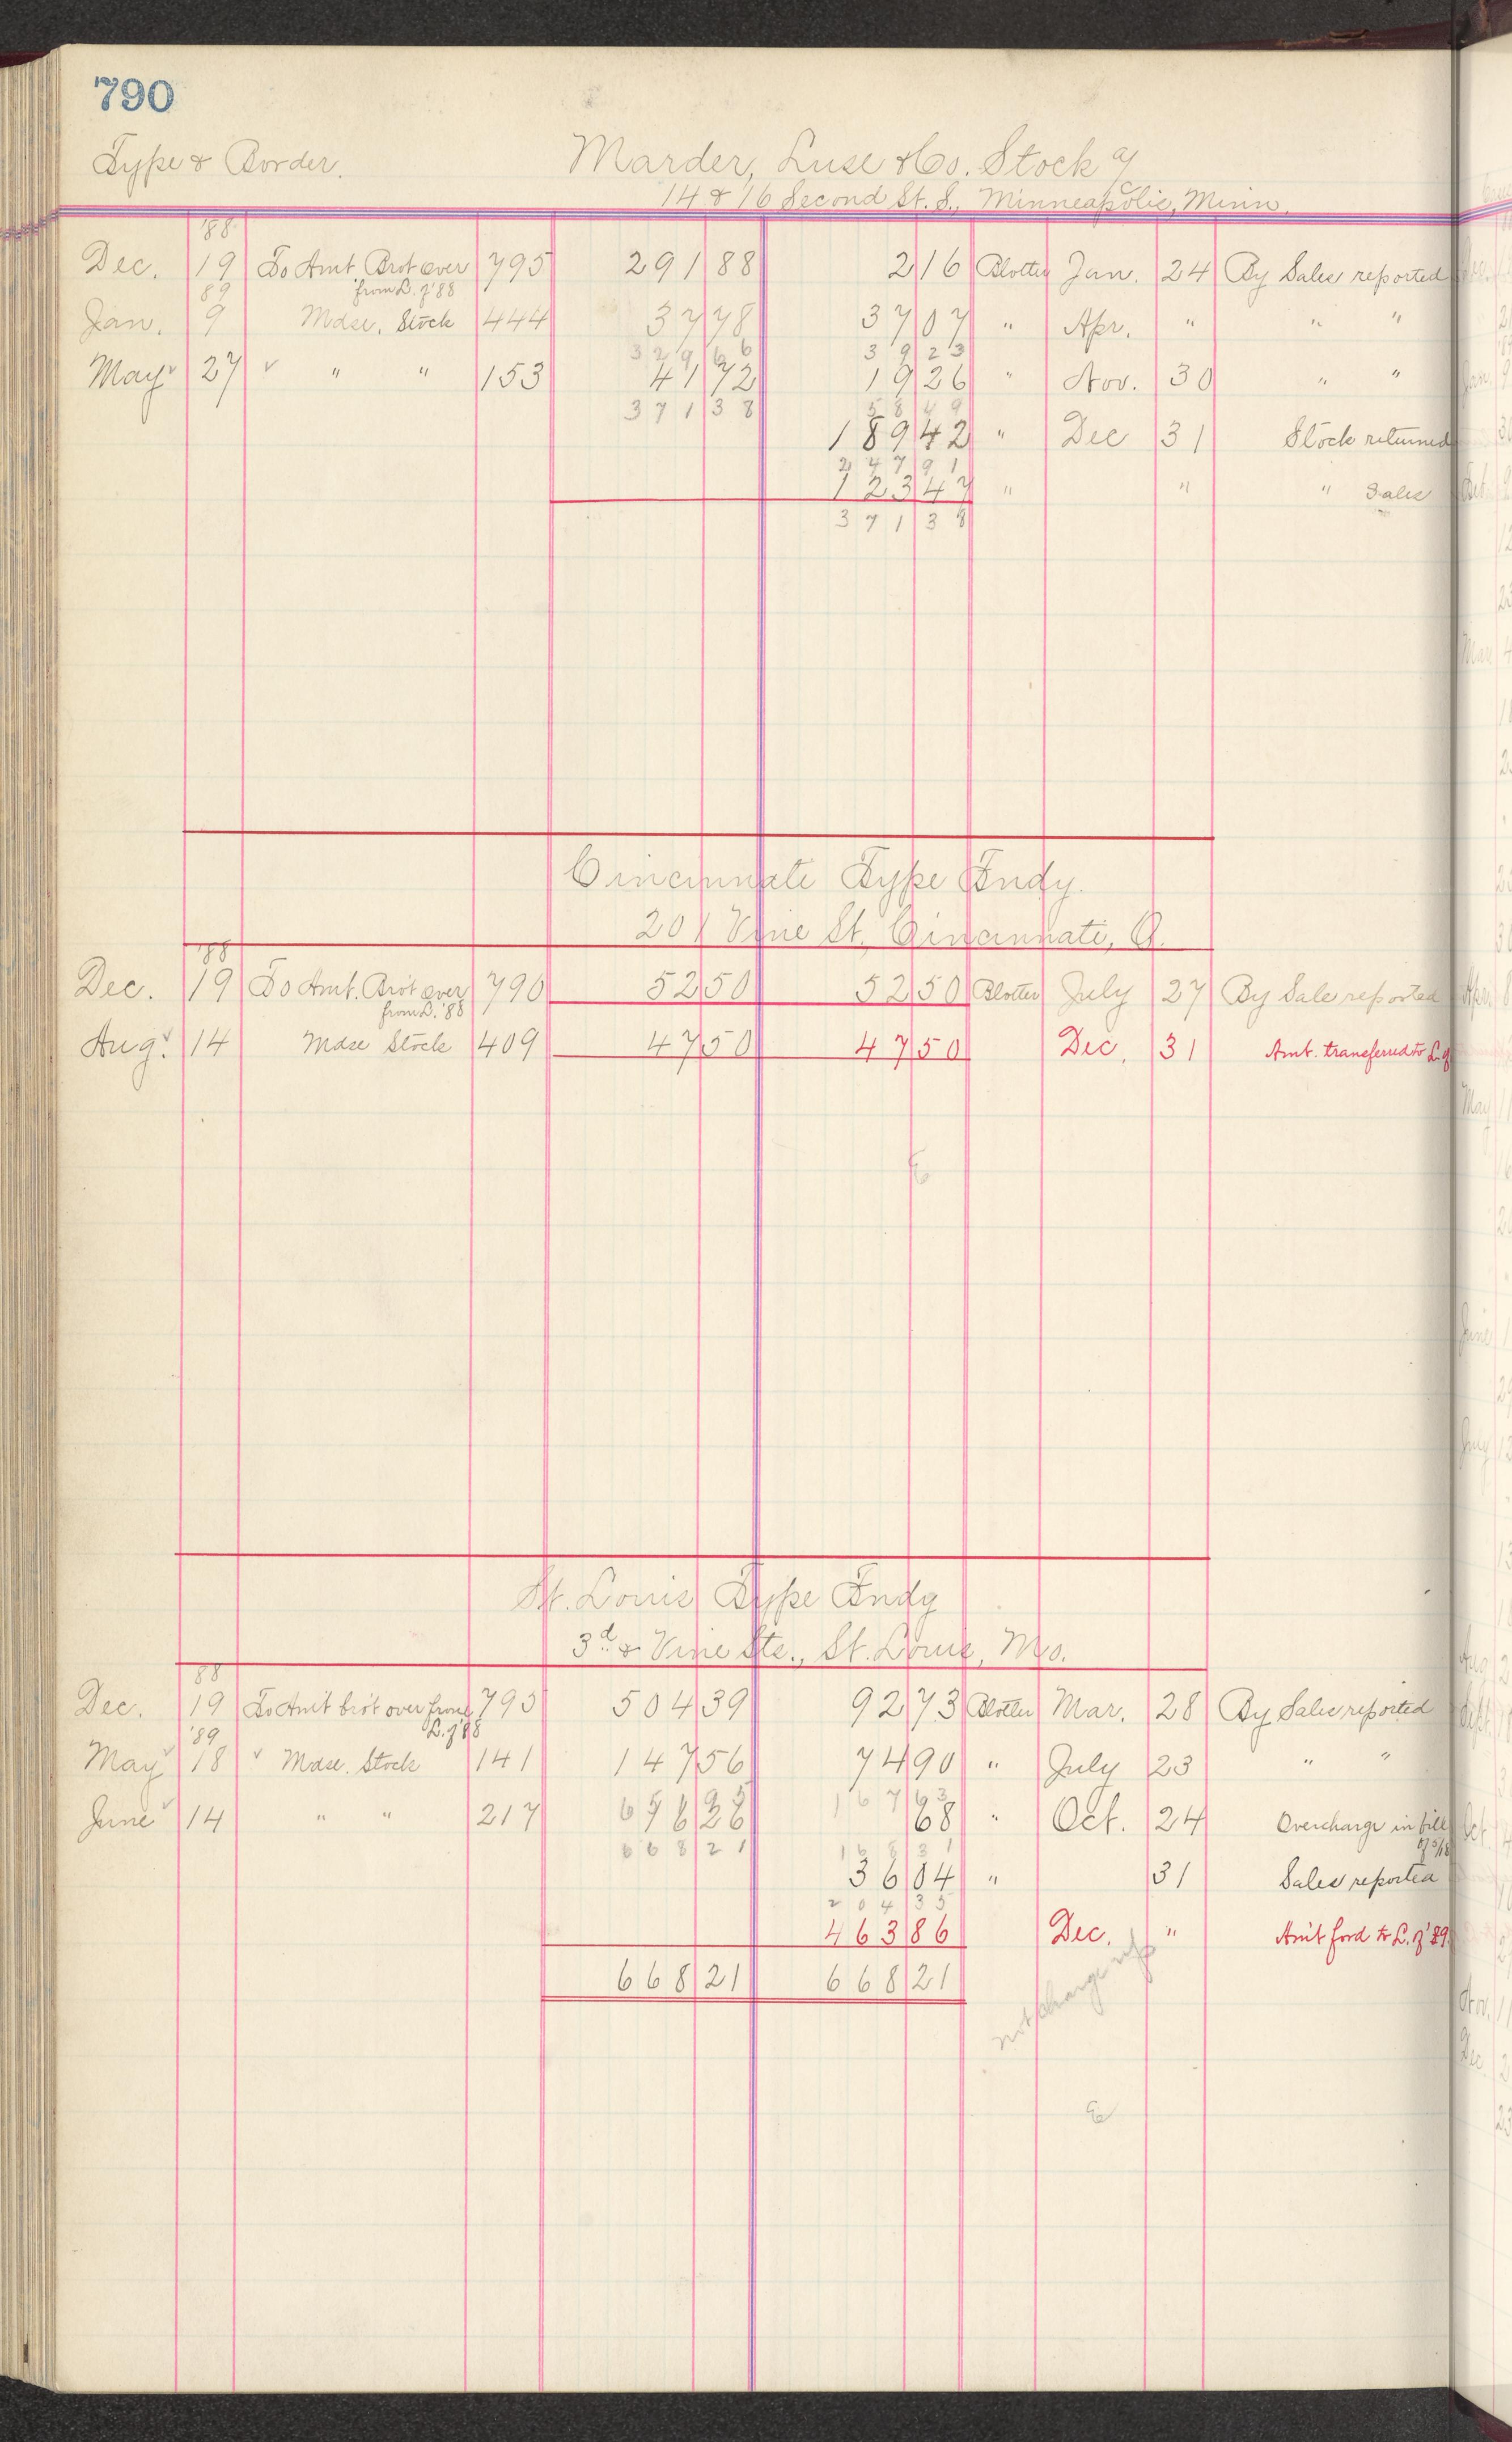 790
Type & Border. Marder, Luse & Co. Stock a/c
14 & 16 Second St. S., Minneapolis, Minn.
'88
Dec. 19 To Amt. Brot over 795 291 88 2 16 Blotter Jan. 24 By Sales reported
from L. of '88
89
Jan. 9 Mdse. Stock 444 37 78 37 07 " Apr. " " "
329 66 39 23
May 27 " " 153 41 72 19 26 " Nov. 30 " "
371 38 58 49
189 42 " Dec 31 Stock returned
247 91
123 47 " " " Sales
371 38
Cincinnati Type Fndy.
201 Vine St. Cincinnati, O.
'88
Dec. 19 To Amt. Bro't over 790 52 50 52 50 Blotter July 27 By Sale reported
from L. '88
Aug. 14 Mdse Stock 409 47 50 47 50 Dec. 31 Amt. transferred to L. of
St. Louis Type Fndy
3d. & Vine Sts., St. Louis, Mo.
88
Dec. 19 To Am't bro't over from 795 504 39 92 73 Blotter Mar. 28 By Sales reported
L. of '88
'89
May 18 Mdse. Stock 141 147 56 74 90 " July 23 " "
167 63
June 14 " " 217 68 " Oct. 24 Overcharge in bill
668 21 168 31 of 5/18
36 04 " 31 Sales reported
204 35
463 86 Dec. " Am't ford to L. of '89
668 21 668 21
not charge
E